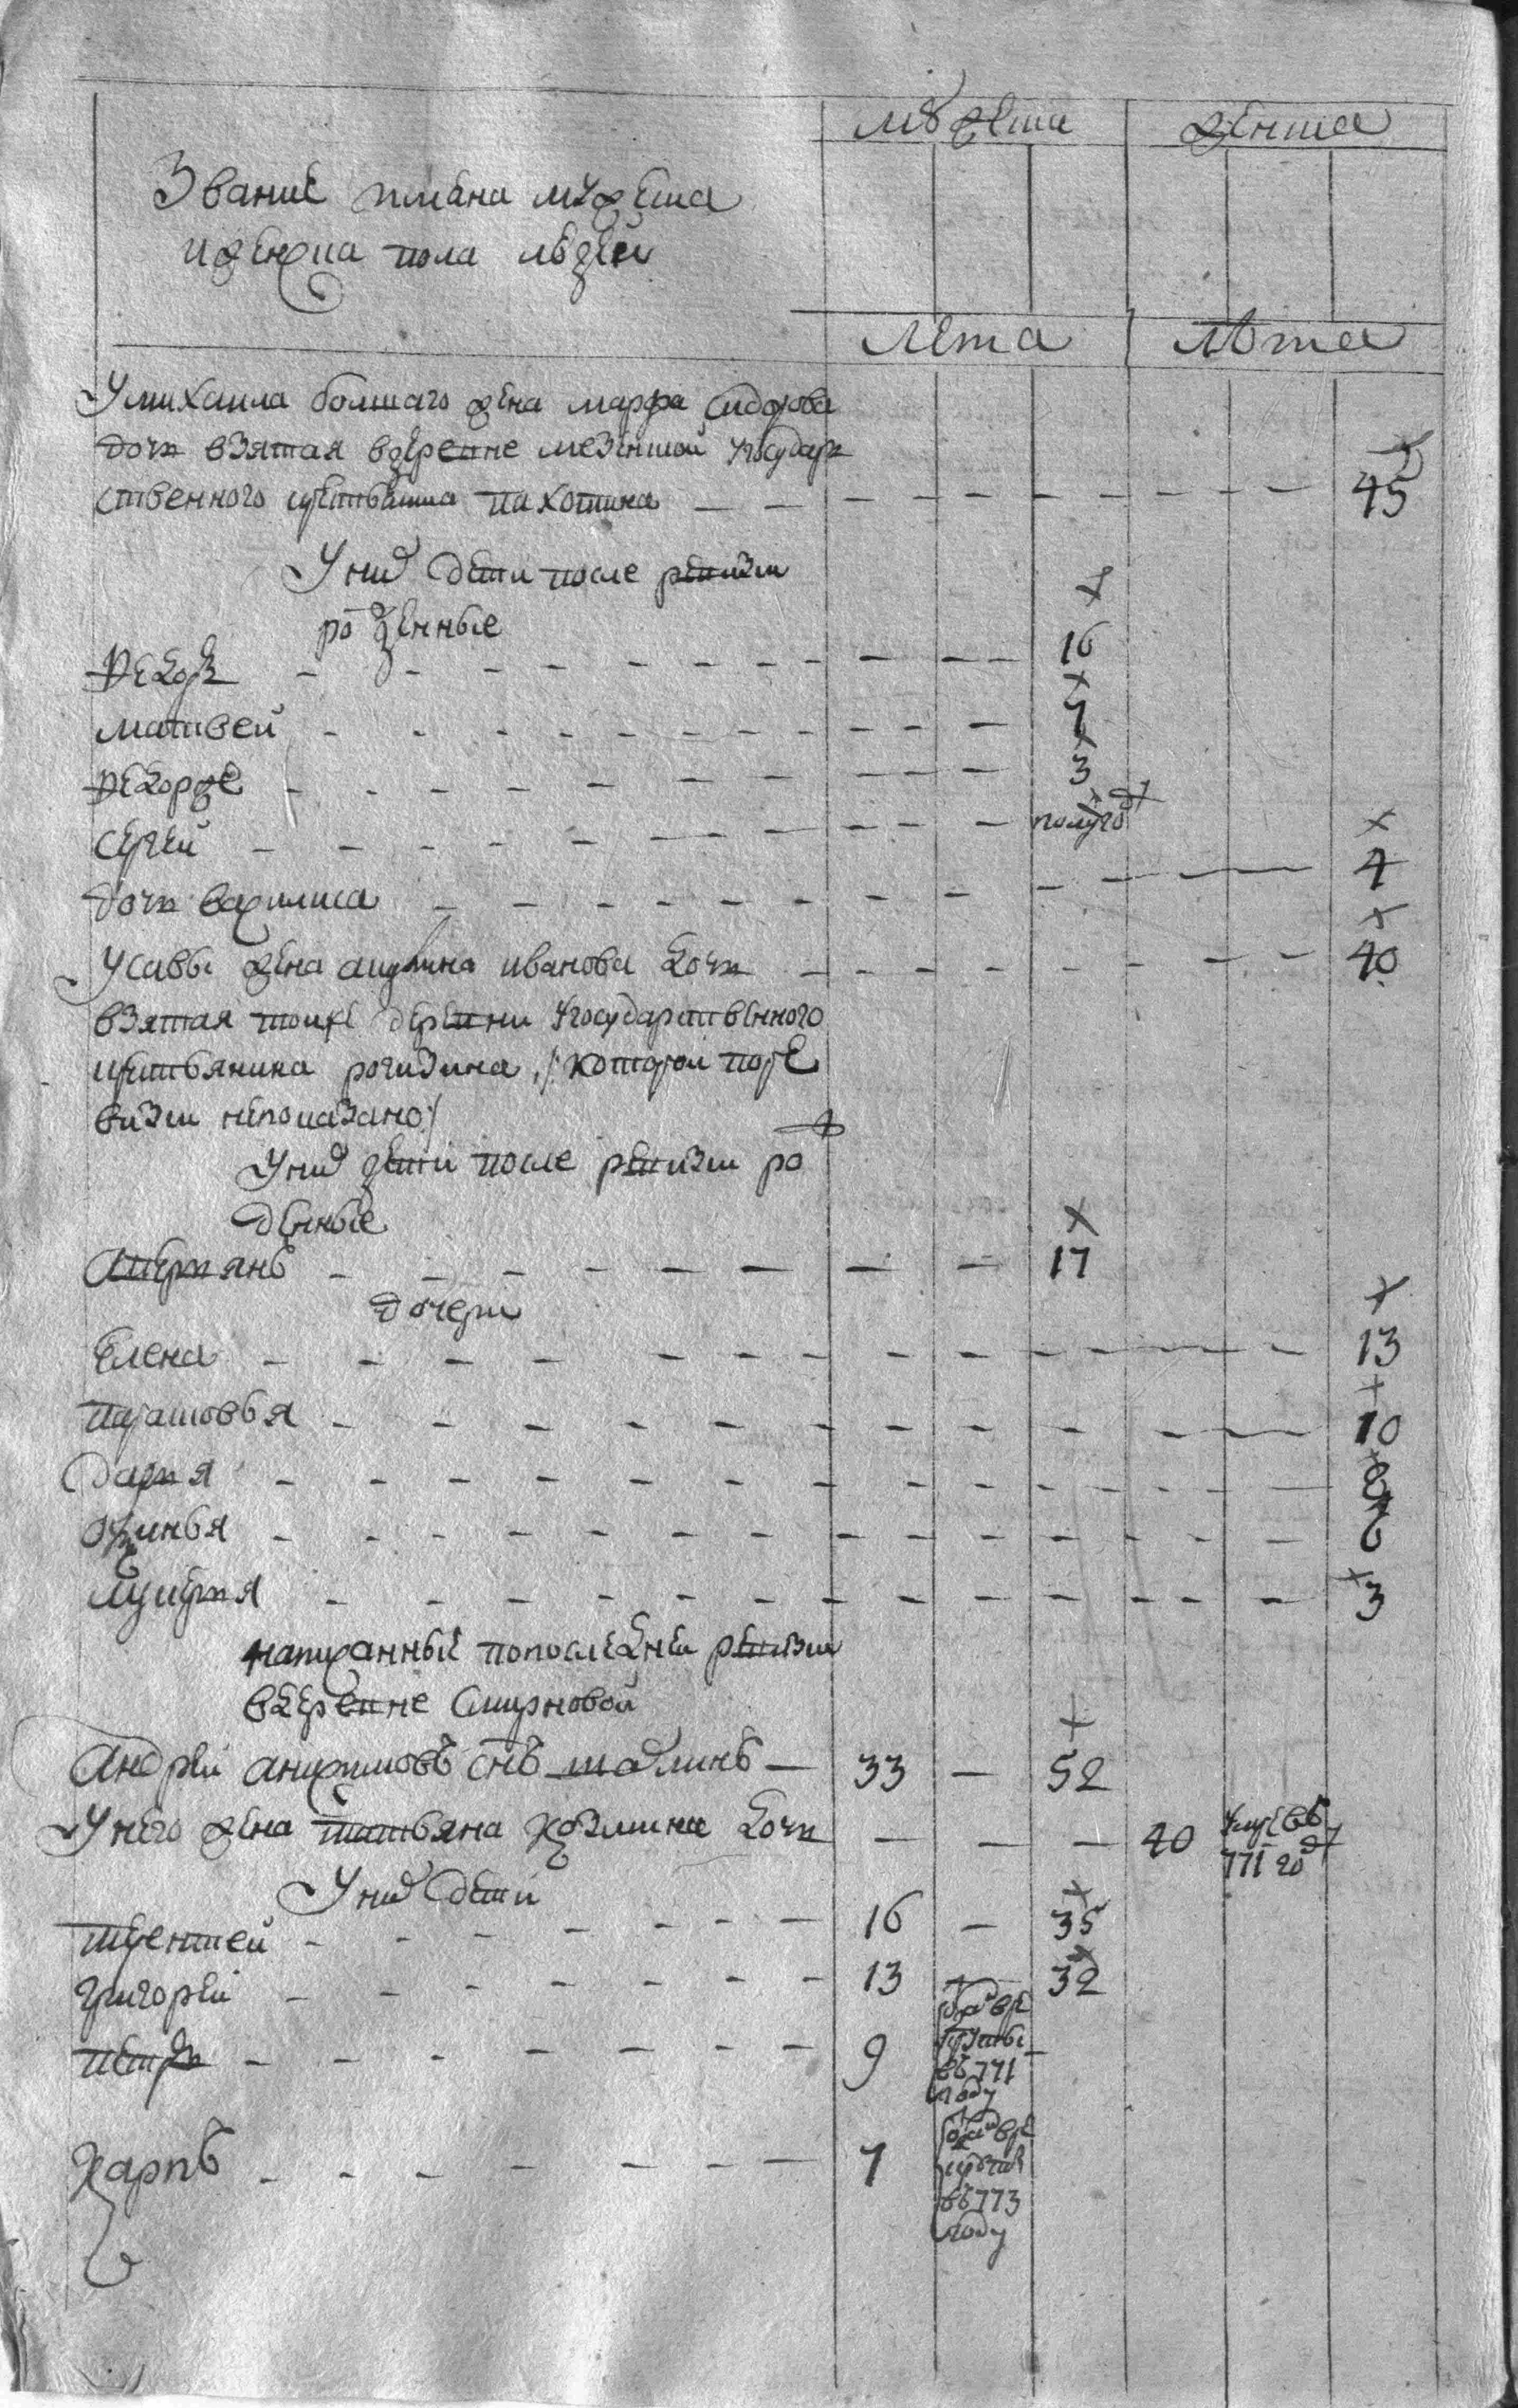 мужеска женска
Звание имена мужеска
и женска пола людей
лета лета
У михаила болшаго жена марфа сидорова
дочь взятая в деревне мезенцовой у государ
ственного крестьянина пахотина — — 45
У них дети после ревизии
рожденные
Федоръ 16
матвей 7
Федоръже 3
сергей полугоду
дочь василиса 4
У савы жена иванова дочь 40
взятая тоейже деревни у государственного
крестьянина рогизина /: которой по ре
визии непоказано :/
У них дети после ревизии ро
жденные
Аверьянъ 17
дочери
Елена 13
прасковья 10
дарья 8
аксинья 6
лукерья 3
написанные попоследней ревизии
в деревне Смирновой
Андрей анисимовъ снъ шалинъ — 33 — 52
У него жена татьяна козмина дочь — — — 40 умре въ
771 году
У них дети
терентей 16 — 35
григорей 13 — 32
петръ 9 отдан в ре
круты
въ 771
году
Карпъ 7 отдан в ре
круты
въ 773
году